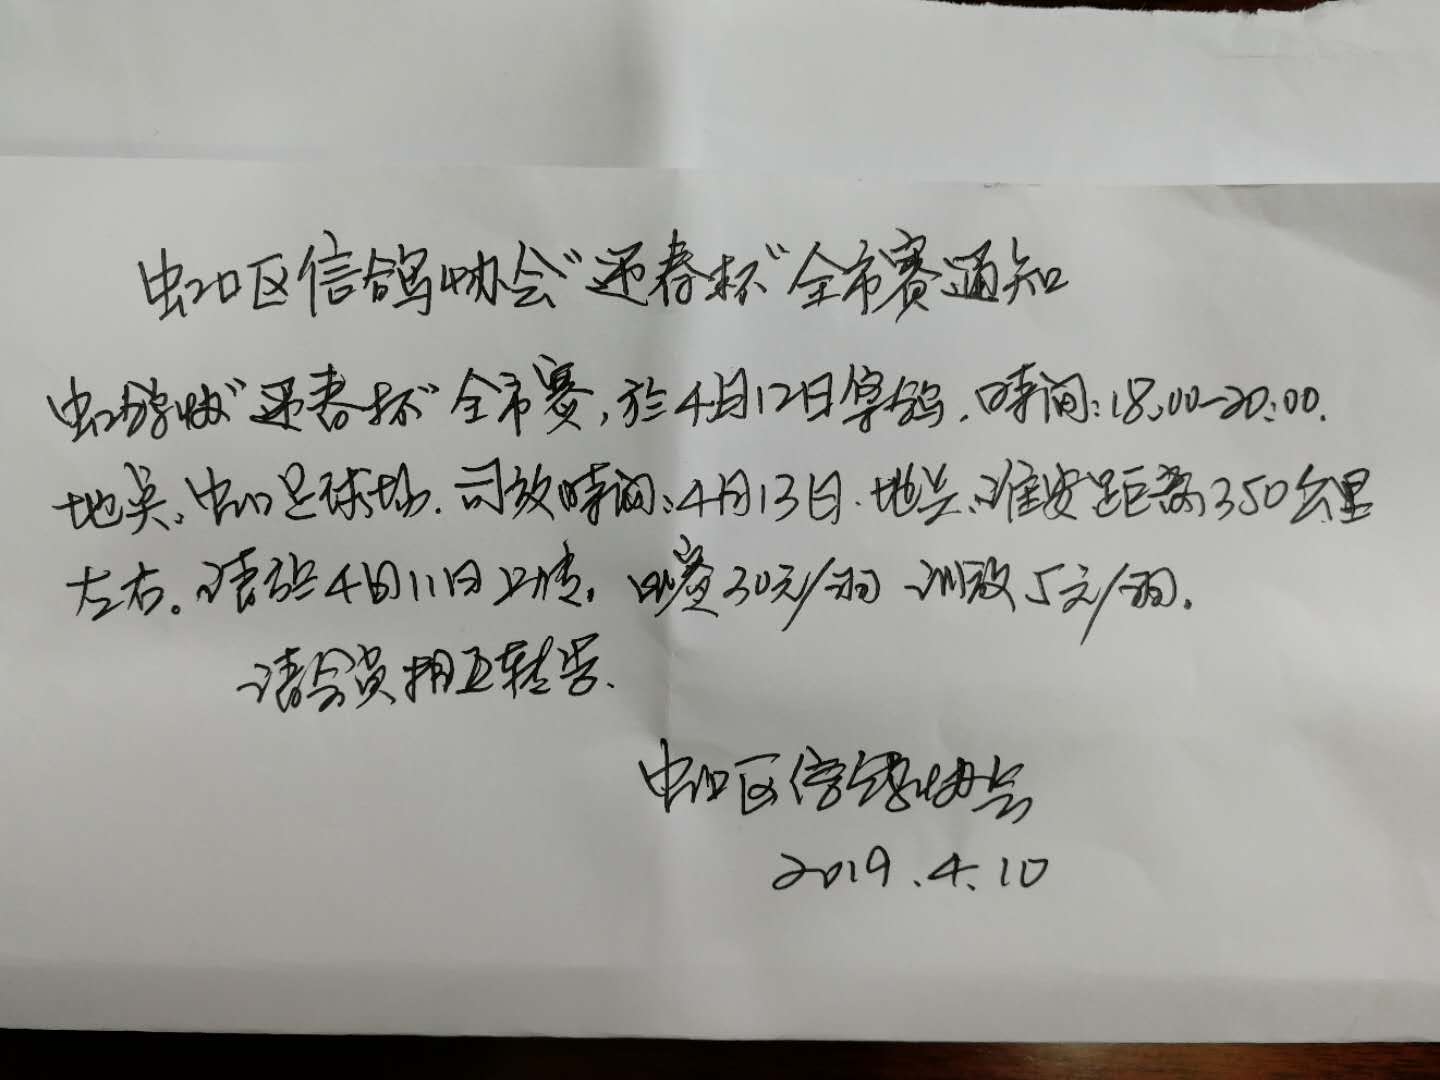 虹口区信鸽协会"迎春杯"全市赛通知
虹口鸽协"迎春杯"全市赛,於4月12日集鸽.時间:18:00-20:00.
地点:虹口足球场.司放時间:4月13日.地点:淮安距离350公里
左右。请於4月11日上传. 比赛30元/羽 训放5元/羽.
请会员相互转告.
虹口区信鸽协会
2019.4.10